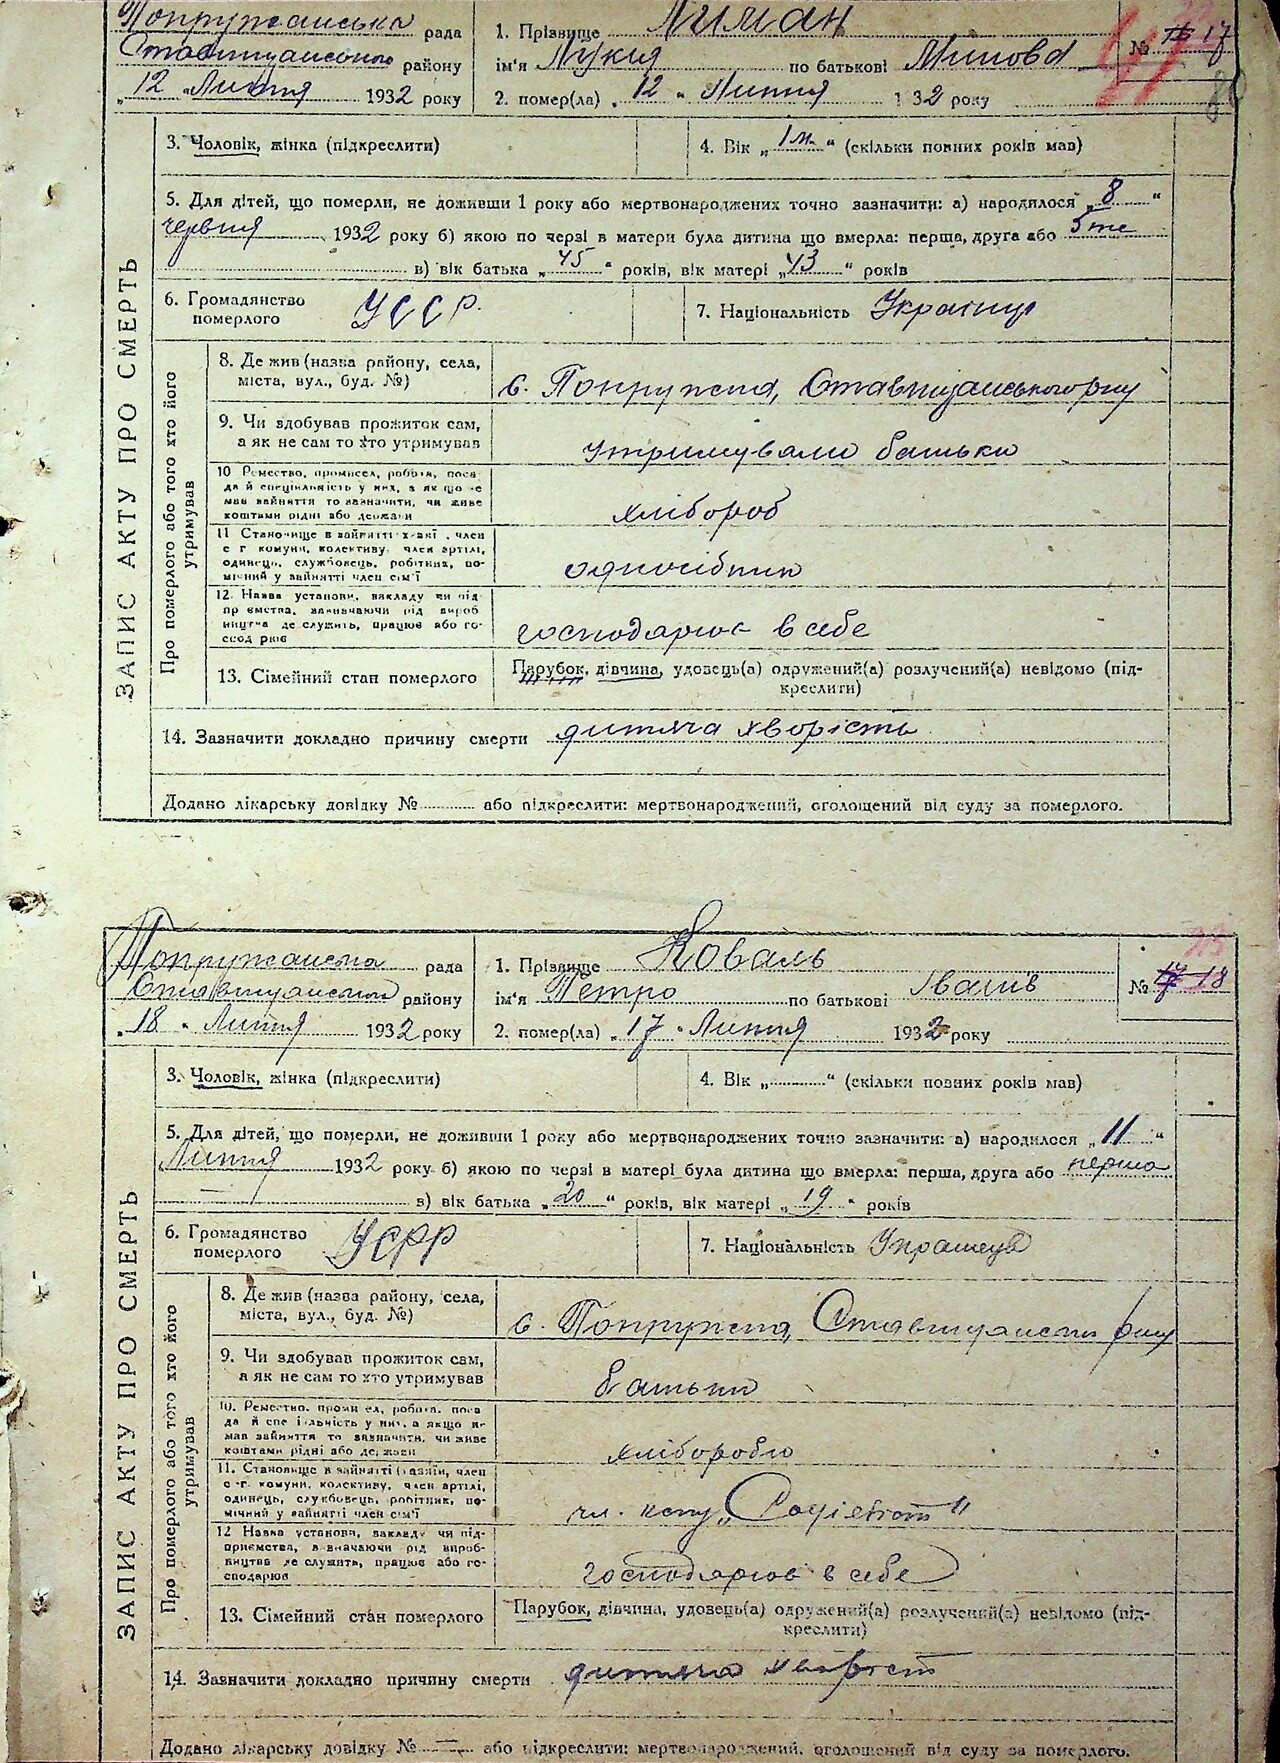 Попружанська рада 1. Прізвище Лиман
Ставищанского району ім'я Лукия по батькові Минова № 17
„12 „ Липня 1932 року 2. помер(ла) „12 „ Липня 1 32 року
3. Чоловік, жінка (підкреслити) 4. Вік „1 м.“ (скільки повних років мав)
5. Для дітей, що померли, не доживши 1 року або мертвонароджених точно зазначити: а) народилося „8“
червня 1932 року б) якою по черзі в матери була дитина що вмерла: перша, друга або 5те
в) вік батька „45“ років, вік матері „43“ років
6. Громадянство померлого УССР. 7. Національність
ЗАПИС АКТУ ПРО СМЕРТЬ
Про померлого або того хто його утримував
8. Де жив (назва району, села,
міста, вул., буд. №) с. Попружна, Ставищанського р-ну
9. Чи здобував прожиток сам,
а як не сам то хто утримував утримували батьки
10 Ремество, промисел, робота, поса
да й спеціяльність у них, а як що не
мав зайняття то зазначити, чи живе
коштами рідні або держави хлібороб
11 Становище в зайнятті член
с г комуни, колективу, член артілі,
одинець, службовець, робітник, по-
мічний у зайнятті член сім'ї односібник
12. Назва установи, закладу чи під
приємства, зазначаючи рід вироб
ництва де служить, працює або го-
сподарює господарює в себе
13. Сімейний стан померлого Парубок, дівчина, удовець(а) одружений(а) розлучений(а) невідомо (під-
креслити)
14. Зазначити докладно причину смерти дитяча хворість
Додано лікарську довідку № або підкреслити: мертвонароджений, оголошений від суду за померлого.
23
Попружанска рада 1. Прізвище Коваль
району ім'я Петро по батькові Іванів № 17 18
„18 „ Липня 1932 року 2. помер(ла) „17 „ Липня 1932 року
3. Чоловік, жінка (підкреслити) 4. Вік „ “ (скільки повних років мав)
5. Для дітей, що померли, не доживши 1 року або мертвонароджених точно зазначити: а) народилося „11“
Липня 1932 року б) якою по черзі в матері була дитина що вмерла: перша, друга або перша
в) вік батька „20“ років, вік матері „19“ років
6. Громадянство померлого УСРР 7. Національність Украінець
ЗАПИС АКТУ ПРО СМЕРТЬ
Про померлого або того хто його утримував
8. Де жив (назва району, села,
міста, вул., буд. №) с. Попружна,
9. Чи здобував прожиток сам,
а як не сам то хто утримував батьки
10. Ремество, промисел, робота, поса
да й спеціяльність у них, а якщо не
мав зайняття то зазначити, чи живе
коштами рідні або держави хлібороби
11. Становище в зайнятті (хазяїн, член
с-г. комуни, колективу, член артілі,
одинець, службовець, робітник, по-
мічний у зайнятті член сім'ї
12 Назва установи, закладу чи під-
приємства, зазначаючи рід вироб-
ництва де служить, працює або го-
сподарює господарює в себе
13. Сімейний стан померлого Парубок, дівчина, удовець(а) одружений(а) розлучений(а) невідомо (під-
креслити)
14. Зазначити докладно причину смерти дитяча
Додано лікарську довідку № — або підкреслити: мертвонароджений, оголошений від суду за померлого.